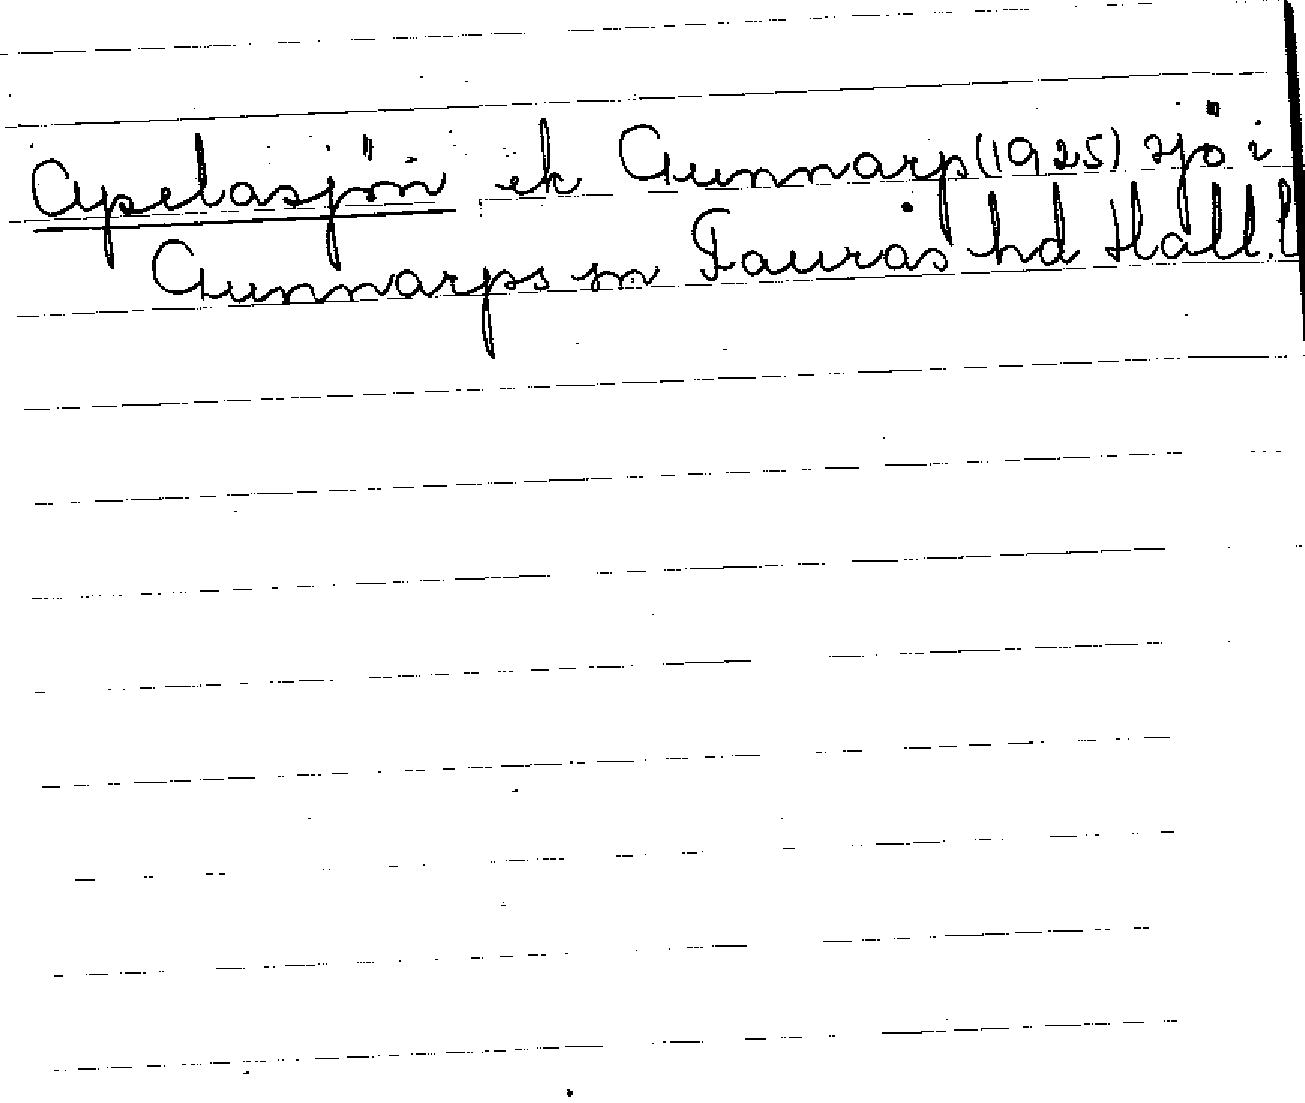 Apelasjön ek Gunnarp (1925) sjö i
Gunnarps sn Faurås hd Hall. l